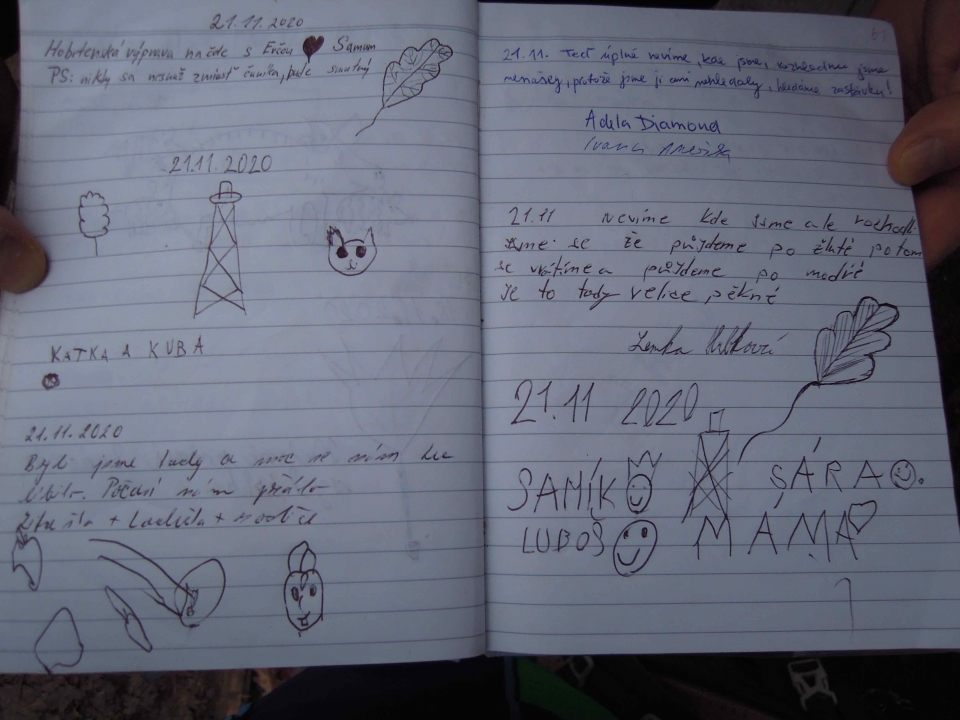 21.11.2020
Hobitenská výprava na čele s Erčou Samom
PS: nikdy sa nesmě zmiasť bude smutný
21.11.2020
KATKA A KUBA
21.11.2020
Byli jsme tady a moc se nám tu
líbilo. Počasí nám přálo
+ Ladička +
21.11. Teď úplně nevíme, kde jsme, rozhlednu jsme
nenašly, protože jsme ji ani nehledaly, hledáme
Adéla Diamond
Ivana
21.11 Nevíme kde jsme ale rozhodli
jsme se že půjdeme po žluté potom
se vrátíme a půjdeme po modré
Je to tady velice pěkné
Lenka
21.11 2020
SAMÍK SÁRA
LUBOŠ MÁMA